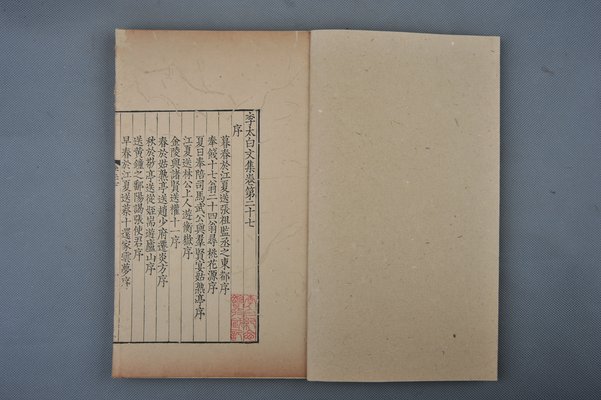 李太白文集卷第二十七
序
暮春於江夏送張祖監丞之東都序
奉餞十七翁二十四翁尋桃花源序
夏日奉陪司馬武公與羣賢宴姑熟亭序
江夏送林公上人遊衡嶽序
金陵與諸賢送權十一序
春於姑熟亭送趙少府遷炎方序
秋於敬亭送從姪耑遊廬山序
送黃鐘之鄱陽謁張使君序
早春於江夏送蔡十還家雲夢序